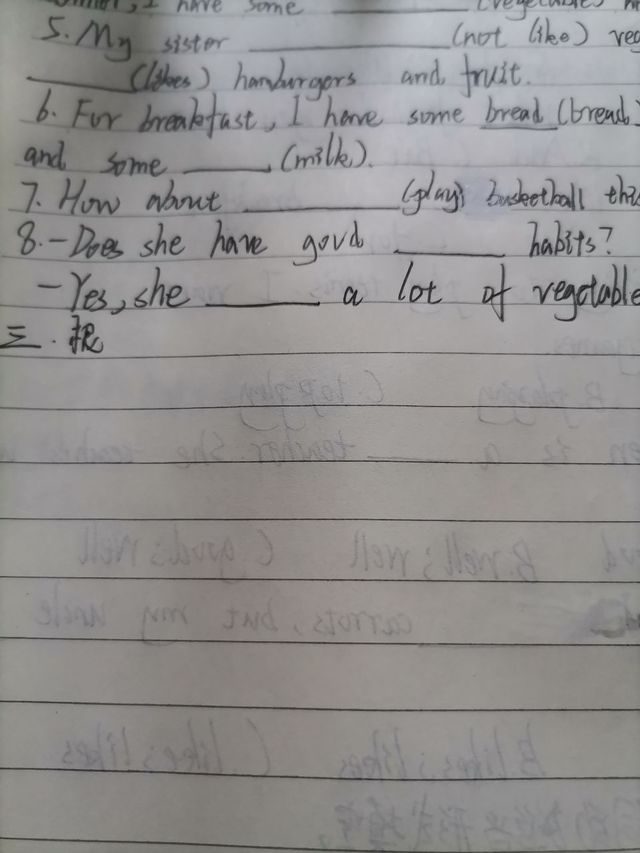 I have some ________ (vegetable)
5. My sister ________ (not like) veg
________ (likes) hamburgers and fruit.
6. For breakfast, I have some bread (bread
and some ________ (milk).
7. How about ________ (play) basketball this
8. -Does she have good ________ habits?
-Yes, she ________ a lot of vegetable
三. 根